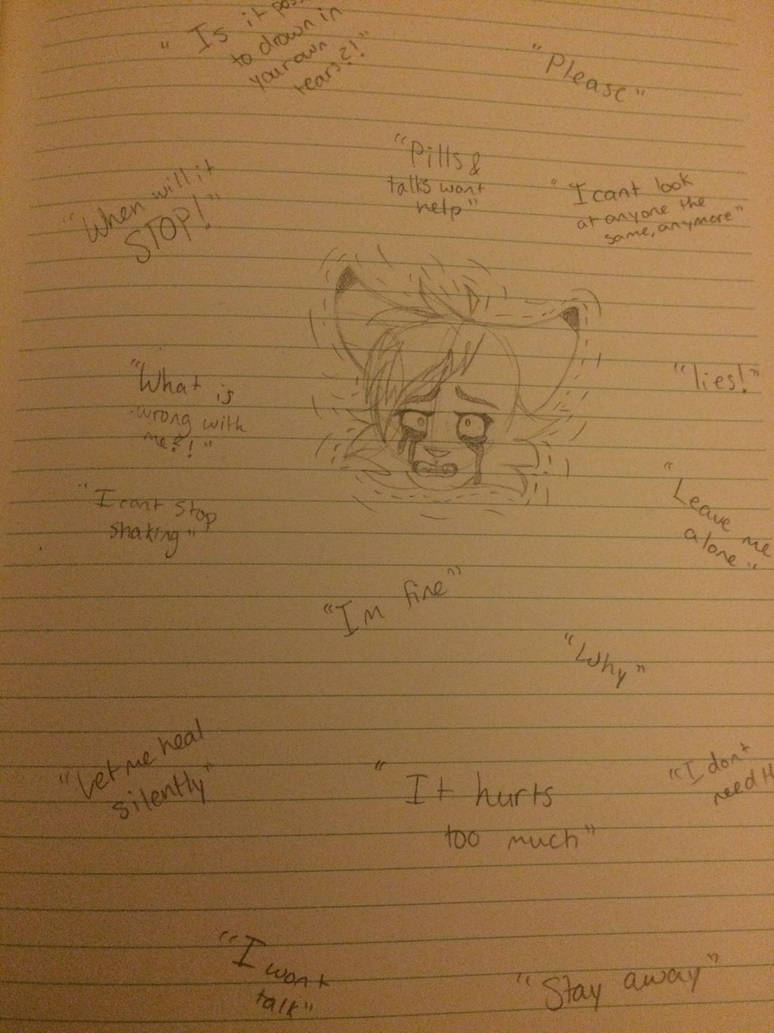 "Is it
to drown in
your own
tears?!"
"Please"
"Pills &
talks wont
help"
"I cant look
at anyone the
same, anymore"
"When will it
STOP!"
"What is
wrong with
me?!"
"lies!"
"I cant stop
shaking"
"Leave me
alone"
"Im fine"
"Why"
"Let me heal
silently"
"It hurts
too much"
"I dont
need
"I wont
talk"
"Stay away"